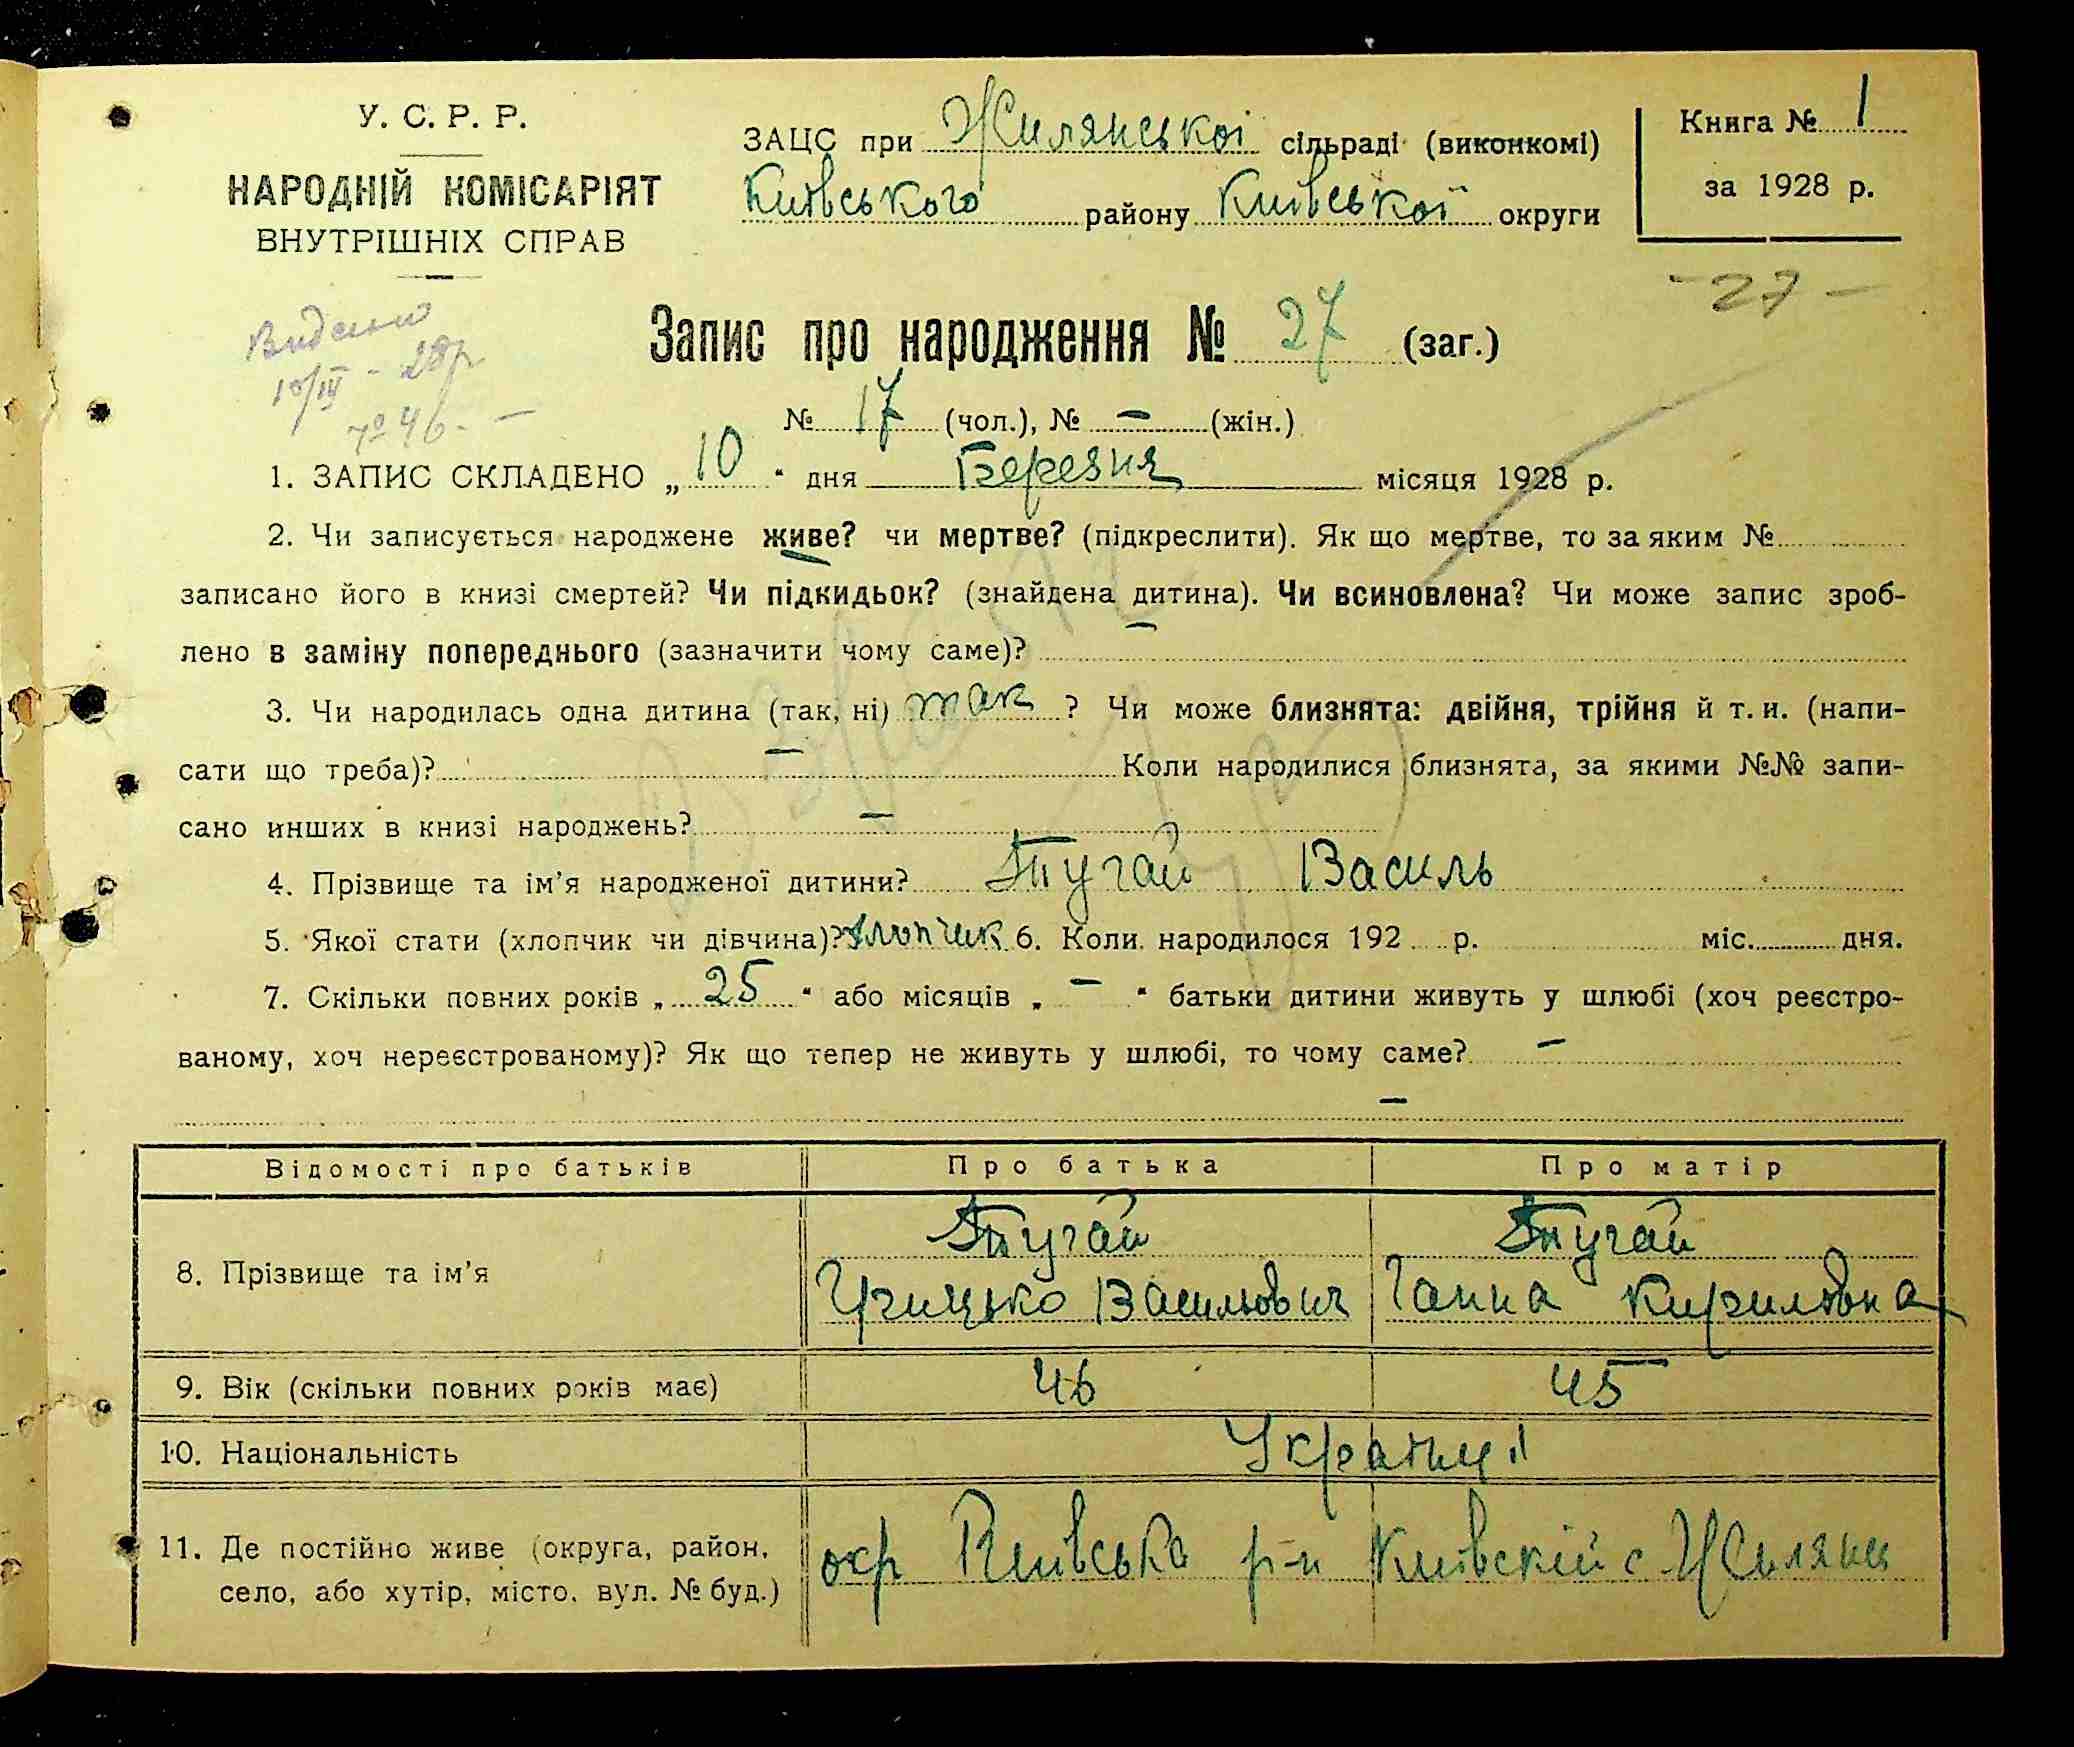 У. С. Р. Р.
НАРОДНІЙ КОМІСАРІЯТ
ВНУТРІШНІХ СПРАВ
ЗАЦС при Жилянської сільраді (виконкомі)
Київського району Київської округи
Книга № 1
за 1928 р.
- 27 -
Видано
10/III - 28р
№ 46. -
Запис про народження № 27 (заг.)
№ 17 (чол.), № — (жін.)
1. ЗАПИС СКЛАДЕНО „ 10 “ дня Березня місяця 1928 р.
2. Чи записується народжене живе? чи мертве? (підкреслити). Як що мертве, то за яким №
записано його в книзі смертей? Чи підкидьок? (знайдена дитина). Чи всиновлена? Чи може запис зроб-
лено в заміну попереднього (зазначити чому саме)? —
3. Чи народилась одна дитина (так, ні) так ? Чи може близнята: двійня, трійня й т. и. (напи-
сати що треба)? — Коли народилися близнята, за якими №№ запи-
сано инших в книзі народжень? —
4. Прізвище та ім’я народженої дитини? Тугай Василь
5. Якої стати (хлопчик чи дівчина)? хлопчик 6. Коли народилося 192 р. міс. дня.
7. Скільки повних років „ 25 “ або місяців „ — “ батьки дитини живуть у шлюбі (хоч реєстро-
ваному, хоч нереєстрованому)? Як що тепер не живуть у шлюбі, то чому саме? —
—
Відомості про батьків Про батька Про матір
8. Прізвище та ім’я
Тугай Тугай
Грицько Васильович Ганна Кириловна
9. Вік (скільки повних років має) 46 45
10. Національність Українці
11. Де постійно живе (округа, район,
село, або хутір, місто, вул. № буд.)
окр Київська р-н Київскій с Жиляни